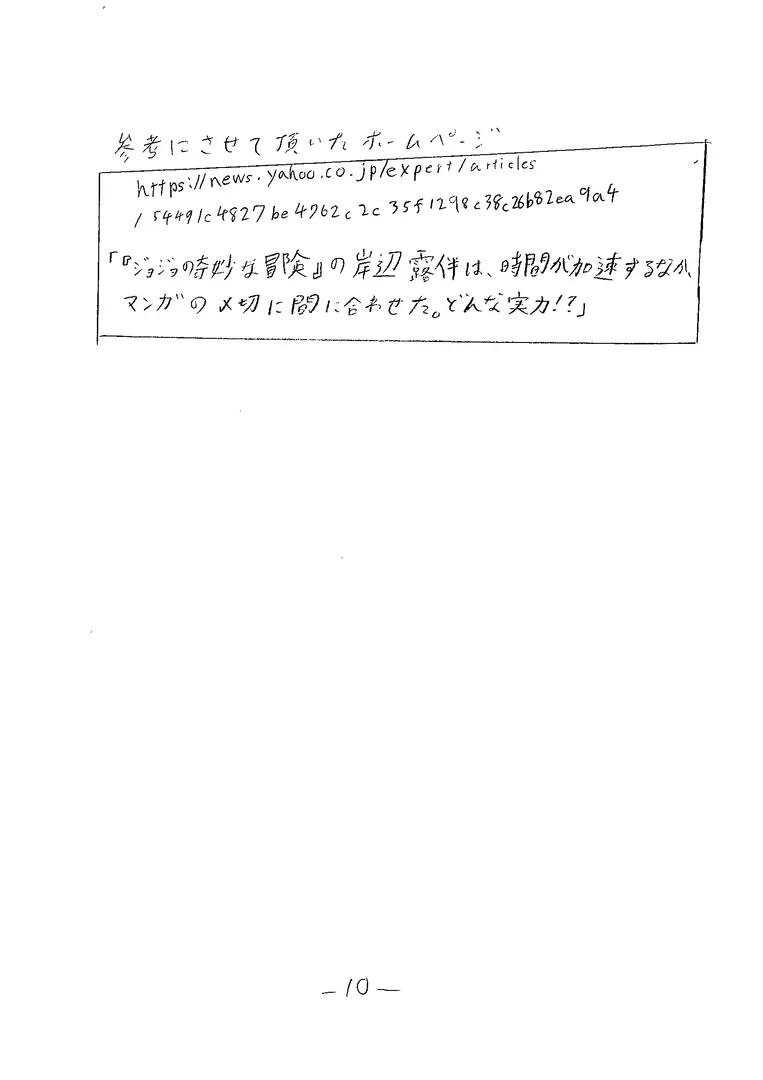 参考にさせて頂いたホームページ
https://news.yahoo.co.jp/expert/articles
/54491c4827be4962c2c35f1298c38c26b82ea9a4
「『ジョジョの奇妙な冒険』の岸辺露伴は、時間が加速するなか、
マンガの〆切に間に合わせた。どんな実力!?」
—10—